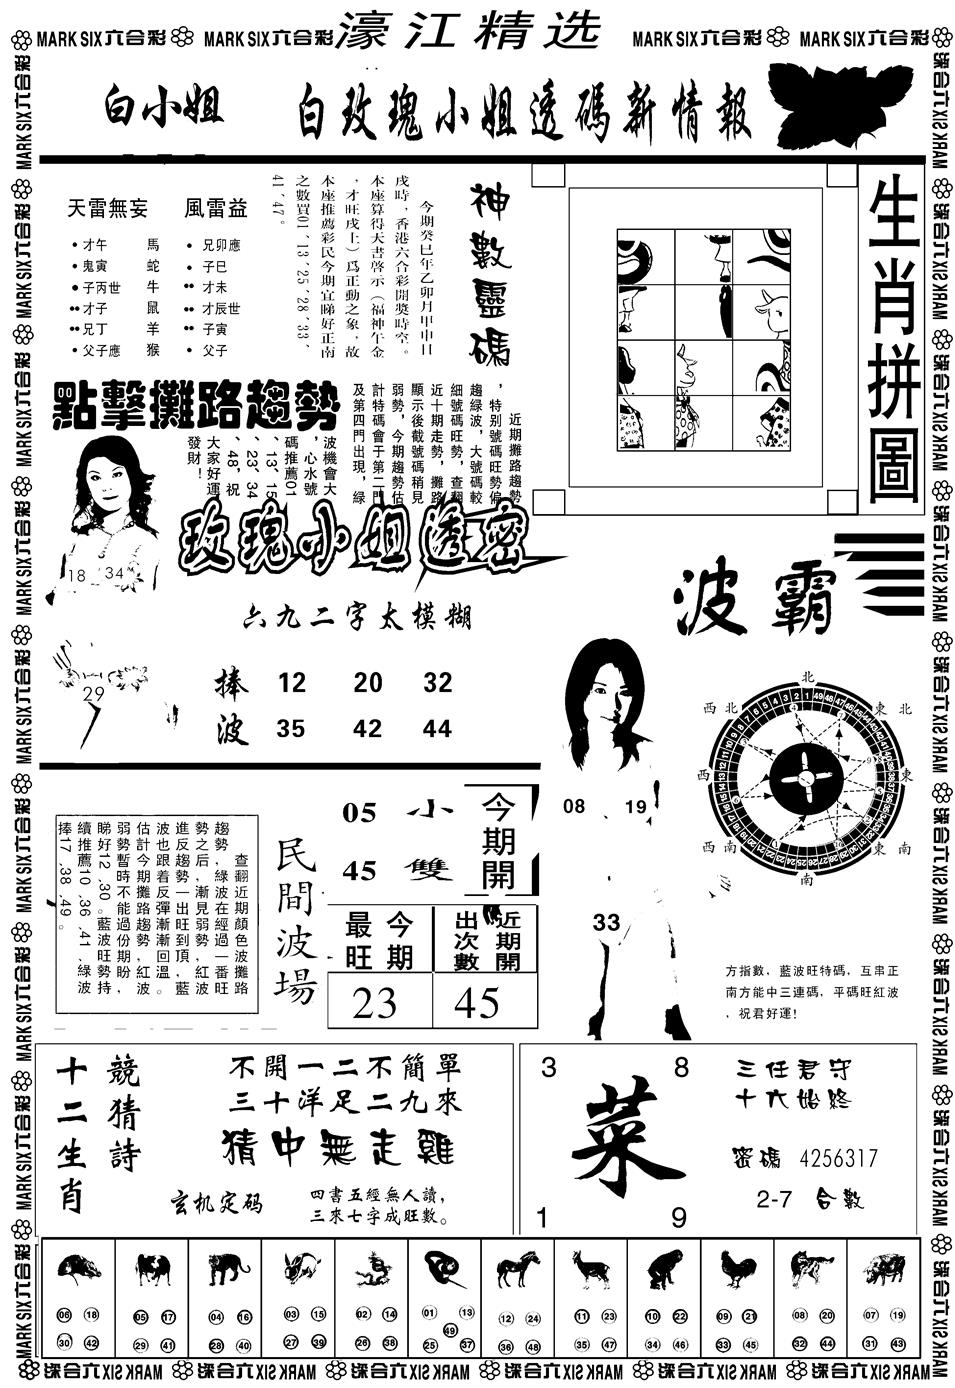 MARK SIX六合彩 MARK SIX六合彩 濠江精选 MARK SIX六合彩 MARK SIX六合彩
白小姐 白玫瑰小姐透碼新情報
天雷無妄
• 才午 馬
• 鬼寅 蛇
• 子丙世 牛
•• 才子 鼠
•• 兄丁 羊
• 父子應 猴
風雷益
• 兄卯應
• 子巳
•• 才未
•• 才辰世
•• 子寅
• 父子
神數靈碼
今期癸巳年乙卯月甲申日
戌時，香港六合彩開獎時空。
本座算得天書啓示（福神午金
，才旺戌土）爲正動之象，故
本座推薦彩民今期宜睇好正南
之數買01、13、25、28、33、
41、47。
生肖拼圖
點擊攤路趨勢
近期攤路趨勢
，特别號碼旺勢偏
趨綠波，大號碼較
細號碼旺勢，查翻
近十期走勢，攤路
顯示後截號碼稍見
弱勢，今期趨勢估
計特碼會于第二門
及第四門出現，綠
波機會大
，心水號
碼推薦01
、13、15
、23、34
、48，祝
大家好運
發財！
18 34
29
玫瑰小姐透密
六九二字太模糊
捧 12 20 32
波 35 42 44
波霸
08 19
33
北
西北 東北
西 東
西南 東南
南
方指數，藍波旺特碼，互串正
南方能中三連碼，平碼旺紅波
，祝君好運！
查翻近期顏色波攤路
趨勢，綠波在經過一番旺
勢之后，漸見弱勢，紅波
進反趨勢一出旺到頂，藍
波也跟着反彈漸漸回溫。
估計今期攤路趨勢紅波
弱勢暫時不能過份期盼，
睇好12、30。藍波旺勢持
續推薦10、36、41、綠波
捧17、38、49。
民間波場
05 小
45 雙
今期開
今期最旺
23
近期開出次數
45
競猜詩
十二生肖
不開一二不簡單
三十洋足二九來
猜中無走雞
玄机定码
四書五經無人讀，
三來七字成旺數。
3 8
菜
1 9
三任君守
十六始終
密碼 4256317
2-7 合數
06 18 30 42
05 17 29 41
04 16 28 40
03 15 27 39
02 14 26 38
01 13 49 25 37
12 24 36 48
11 23 35 47
10 22 34 46
09 21 33 45
08 20 32 44
07 19 31 43
MARK SIX六合彩 MARK SIX六合彩 MARK SIX六合彩 MARK SIX六合彩 MARK SIX六合彩 MARK SIX六合彩